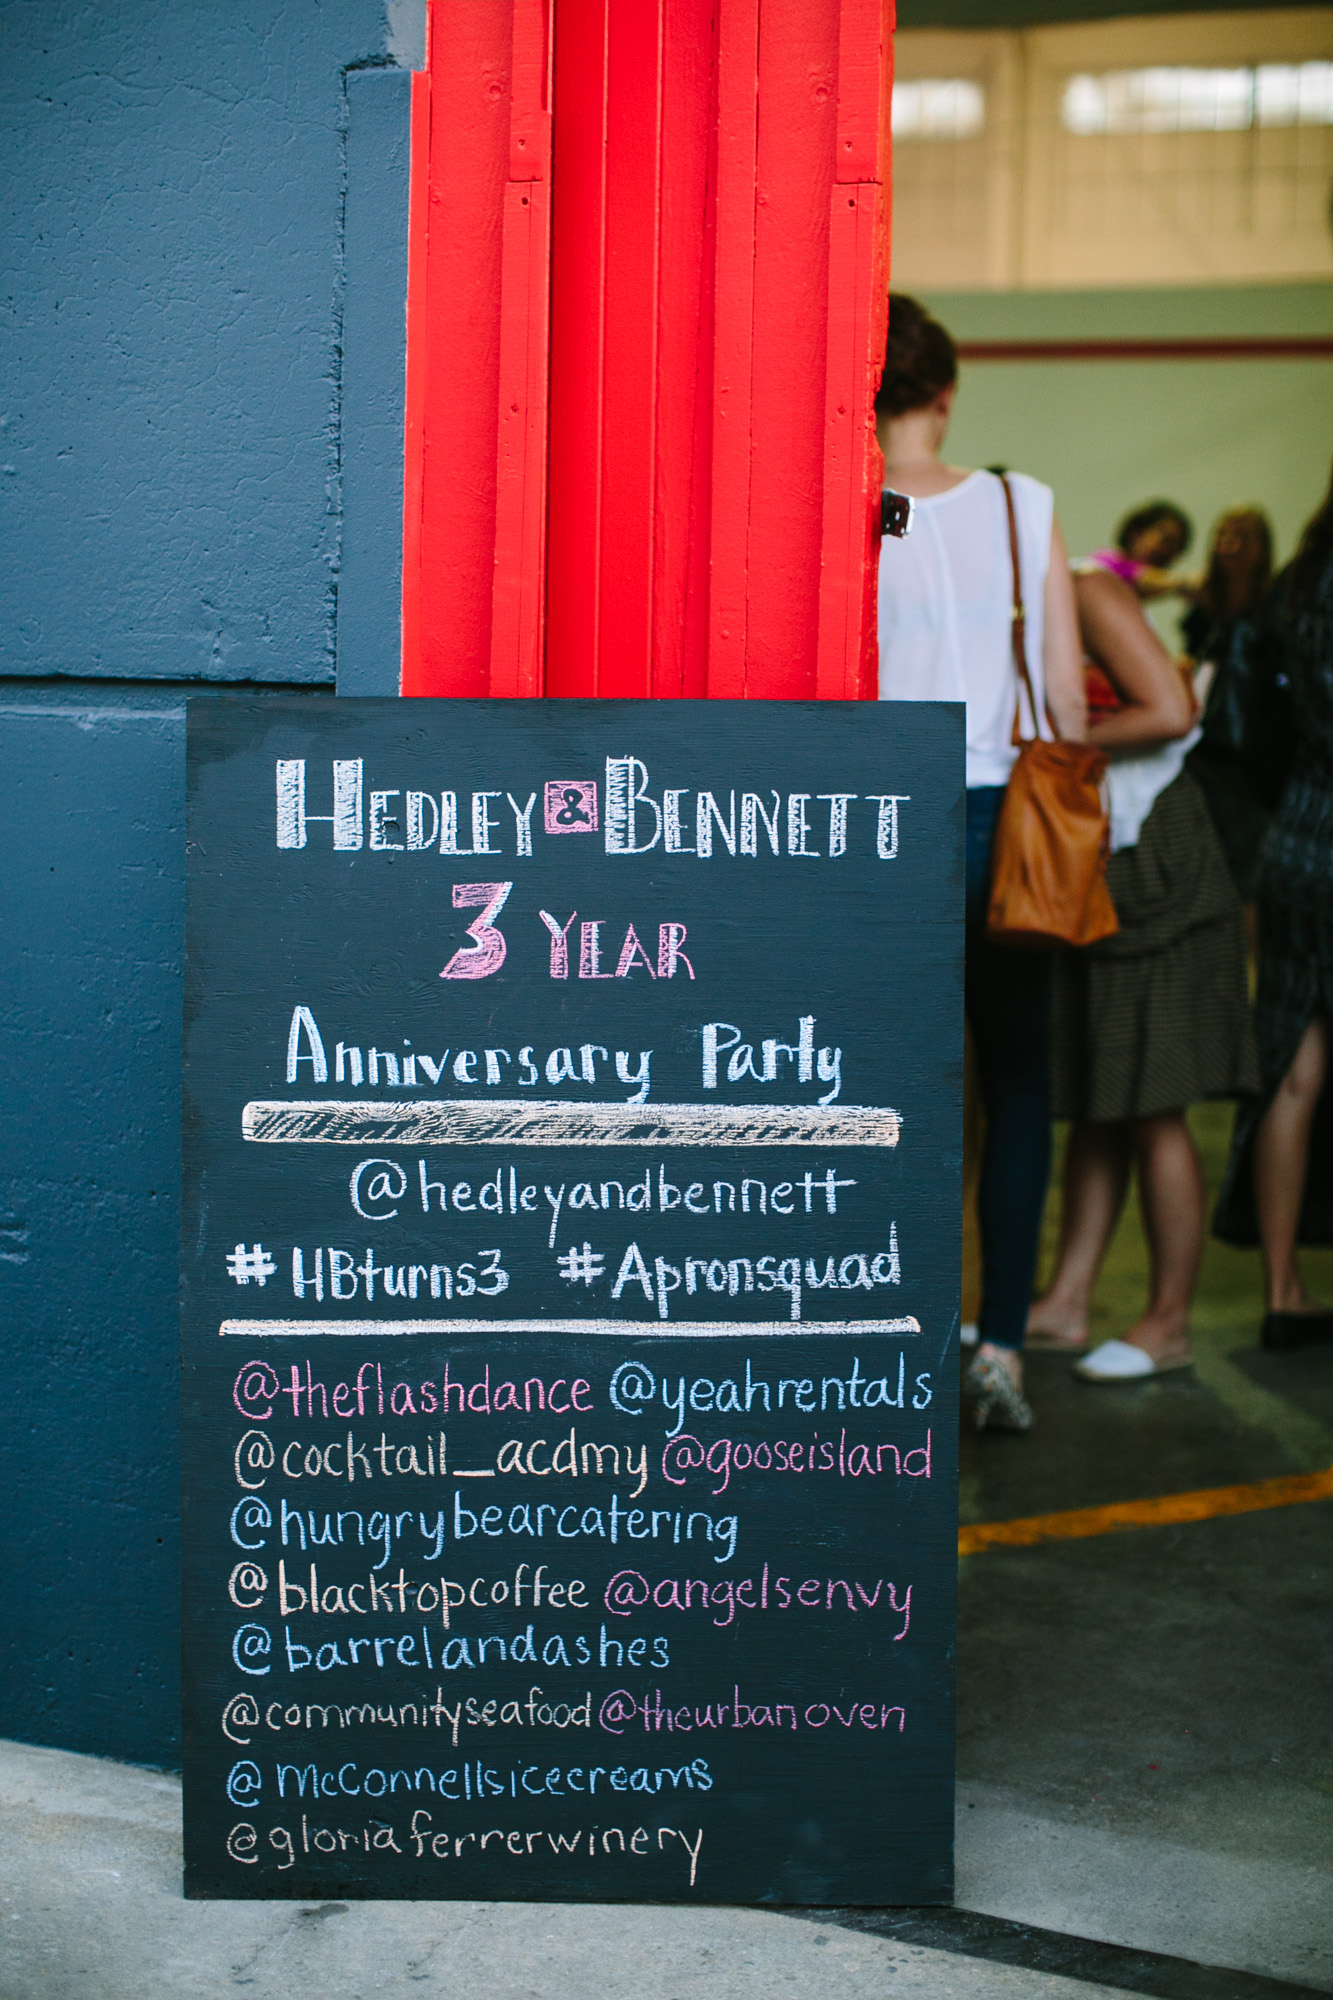 HEDLEY & BENNETT
3 YEAR
Anniversary Party
@hedleyandbennett
#HBturns3 #Apronsquad
@theflashdance @yeahrentals
@cocktail_acdmy @gooseisland
@hungrybearcatering
@blacktopcoffee @angelsenvy
@barrelandashes
@communityseafood @theurbanoven
@McConnellsicecreams
@gloriaferrerwinery